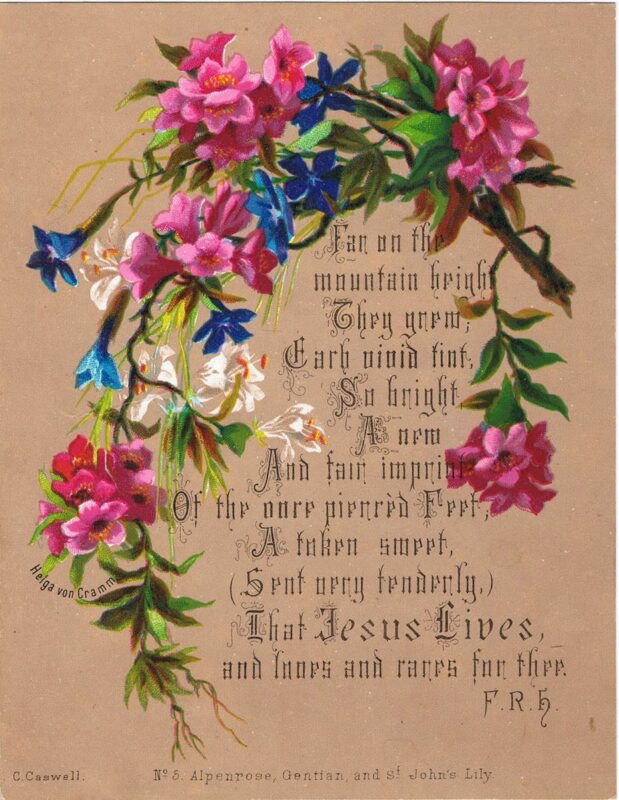 Far on the
mountain height
They grew;
Each vivid tint,
So bright
A new
And fair imprint
Of the once piercèd Feet;
A token sweet,
(Sent very tenderly,)
That Jesus Lives,
and loves and cares for thee.
F.R.H.
Helga von Cramm
C. Caswell.
No 5. Alpenrose, Gentian, and St. John's Lily.